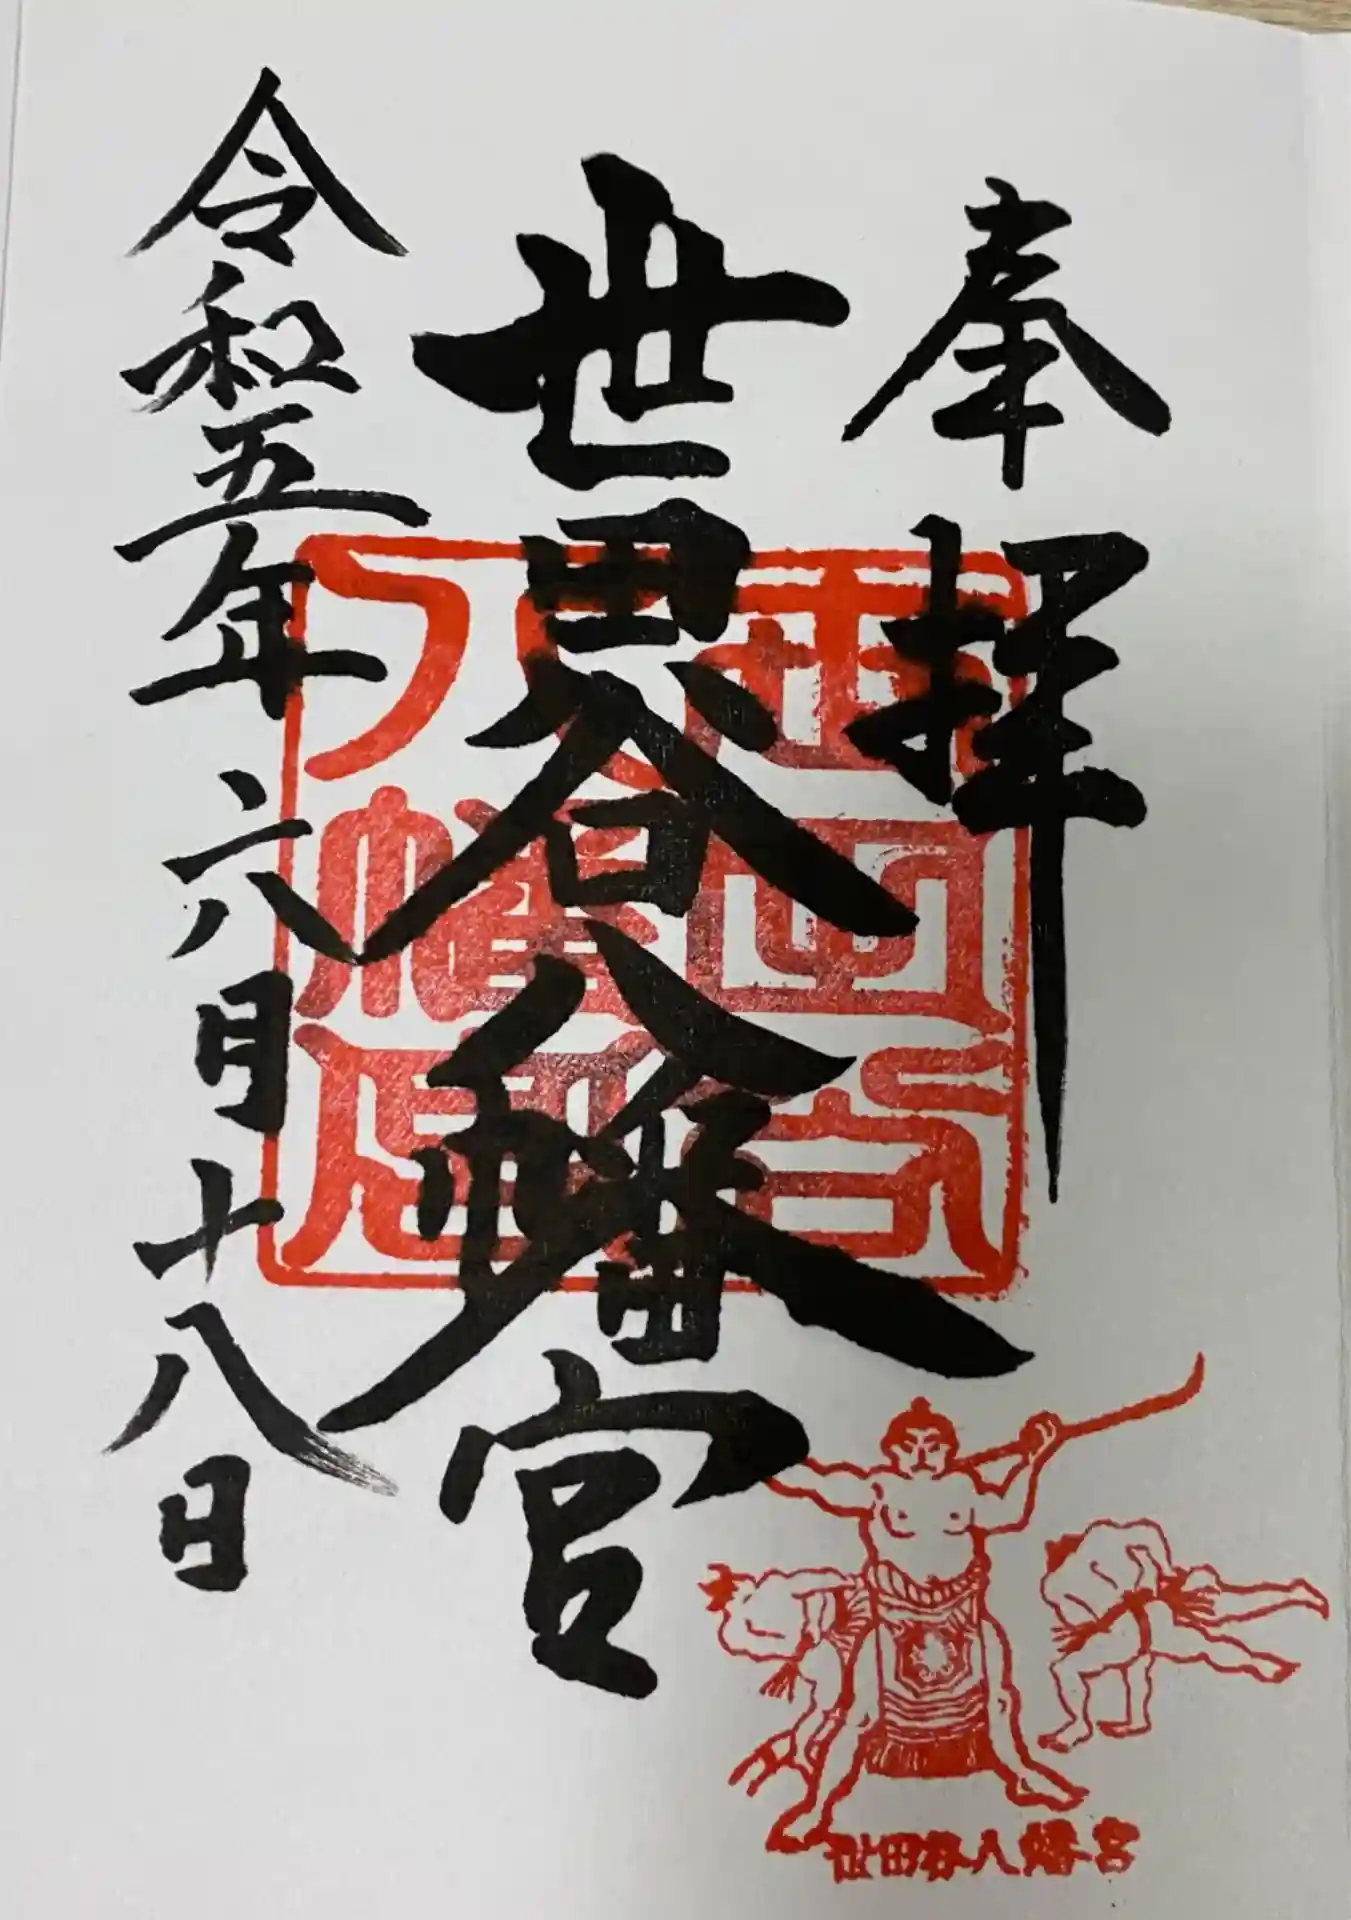 奉拝
世田谷八幡宮
令和五年六月十八日
世田谷
八幡宮
世田谷八幡宮